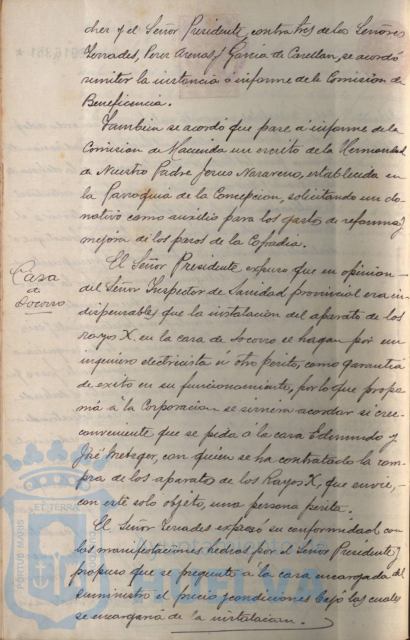 cher y el Señor Presidente, contra tres de los Señores
Terrades, Perez Arenas y Garcia de Casellan, se acordó
remitir la instancia á informe de la Comision de
Beneficencia.
Tambien se acordó que pase á informe de la
Comision de Hacienda un escrito de la Hermandad
de Nuestro Padre Jesus Nazareno, establecida en
la Parroquia de la Concepcion, solicitando un do-
nativo como auxilio para los gastos de reforma y
mejora de los pasos de la Cofradia.
Casa
de
Socorro
El Señor Presidente expuso que en opinion
del Señor Inspector de Sanidad provincial era in-
dispensable que la instalacion del aparato de los
rayos X. en la casa de Socorro se hagan por un
ingeniero electricista ú otro perito, como garantia
de exito en su funcionamiento, por lo que propo-
nia á la Corporacion se sirviera acordar si cree
conveniente que se pida á la casa Edmundo y
José Metzger, con quien se ha contratado la com-
pra de los aparatos de los Rayos X, que envie,
con este solo objeto, una persona perita.
El Señor Terrades expresó su conformidad con
las manifestaciones hechas por el Señor Presidente y
propuso que se pregunte á la casa encargada del
suministro el precio y condiciones bajo las cuales
se encargaria de la instalacion.
PORTUS MAGNUS
ET TERRA